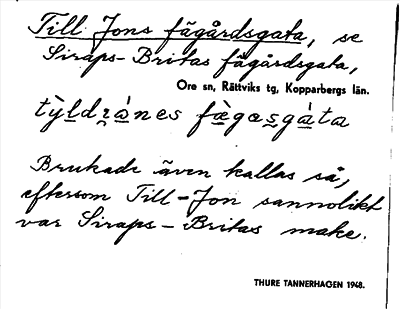 Till Jons fägårdsgata, se
Siraps-Britas fägårdsgata,
Ore sn, Rättviks tg, Kopparbergs län.
tỳḷdṛȧ̀nes fæ̀gaṣgȧ́ta
Brukade även kallas så,
eftersom Till-Jon sannolikt
var Siraps-Britas make.
THURE TANNERHAGEN 1948.